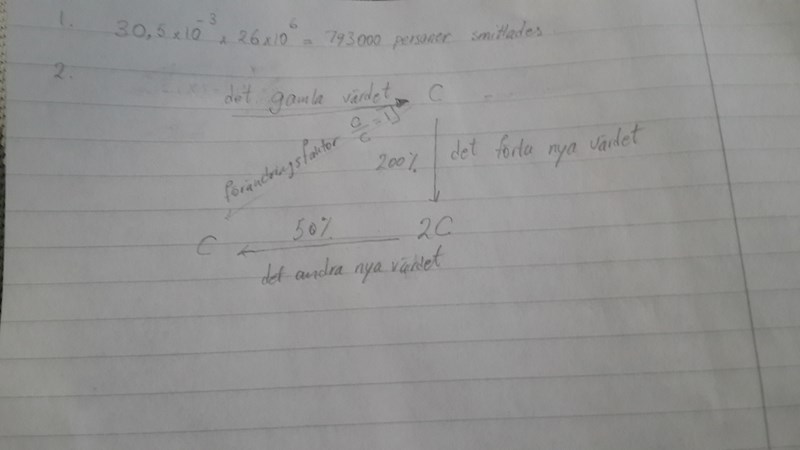 1. 30,5x10⁻³ x 26x10⁶ = 793000 personer smittades
2.
det gamla värdet C
förändringsfaktor c/c = 1
200% det förta nya värdet
C 50% 2C
det andra nya värdet